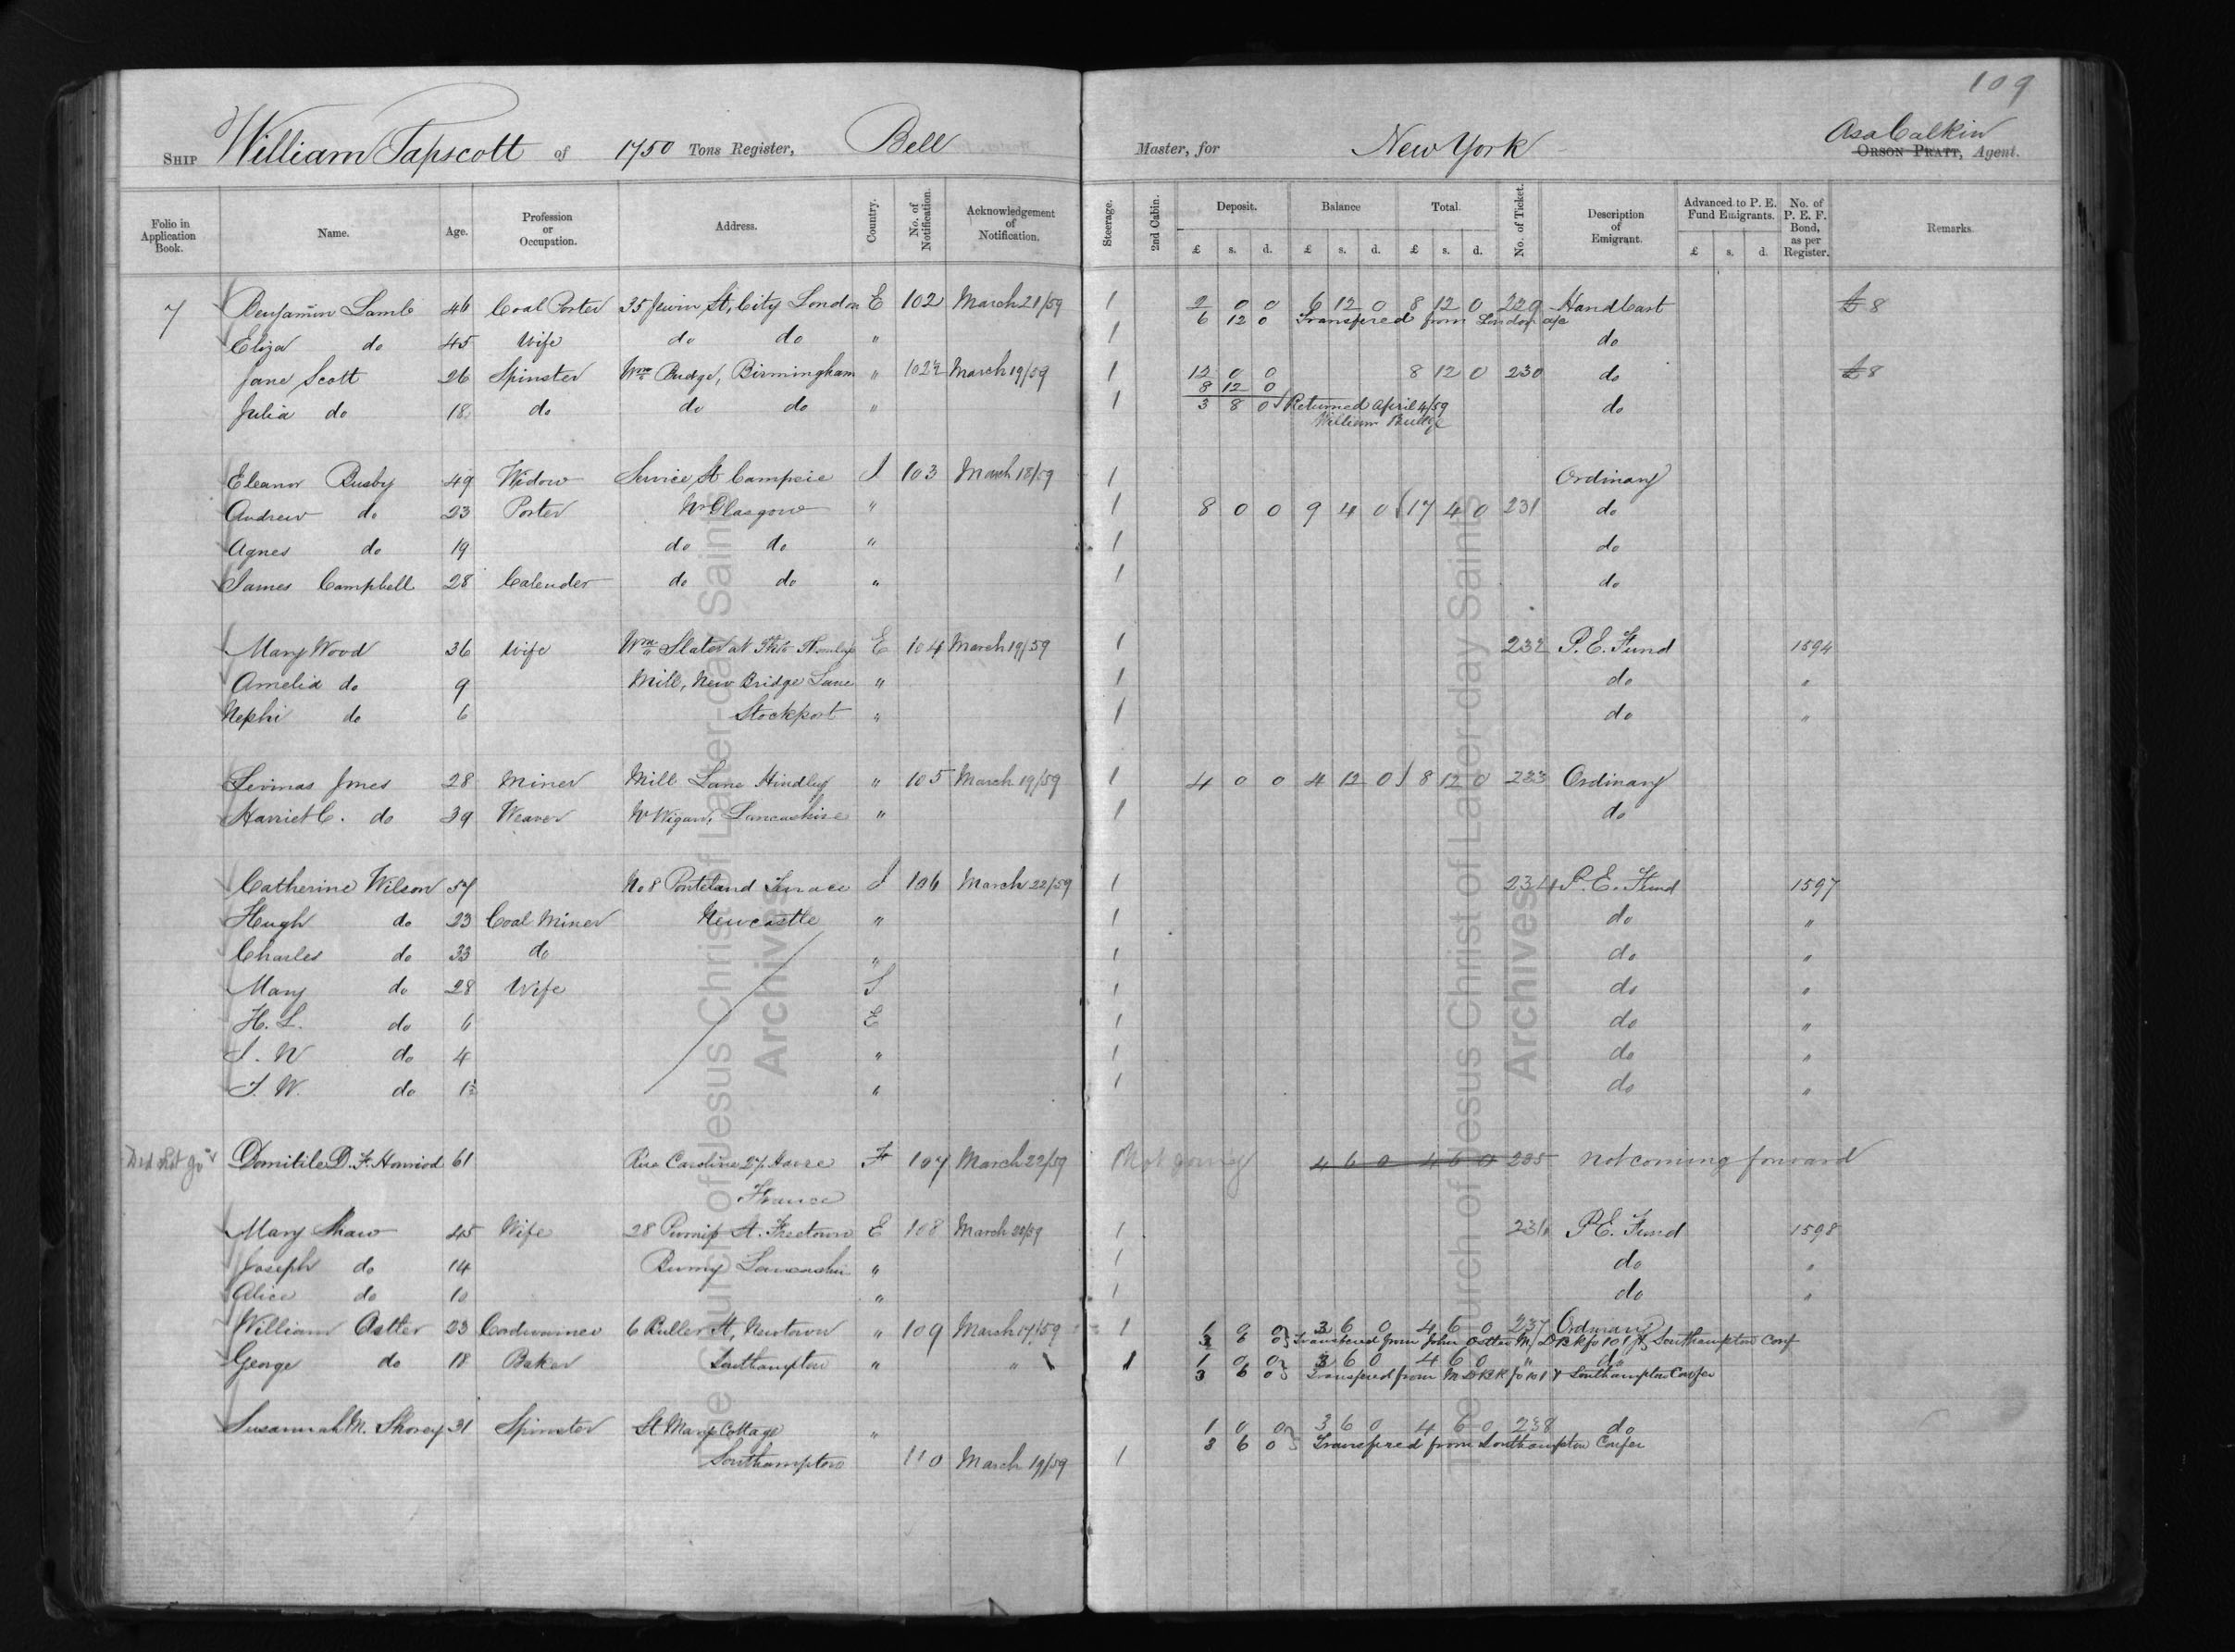 109
Ship William Tapscott of 1750 Tons Register, Bell Master, for New York Asa Calkin Orson Pratt, Agent.
Folio in Application Book. Name. Age. Profession or Occupation. Address. Country. No. of Notification. Acknowledgement of Notification. Steerage. 2nd Cabin. Deposit. £ s. d. Balance £ s. d. Total £ s. d. No. of Ticket. Description of Emigrant. Advanced to P. E. Fund Emigrants. £ s. d. No. of P. E. F. Bond, as per Register. Remarks
7 Benjamin Lamb 46 Coal Porter 35 Jewin St, City London E 102 March 21/59 1 2 0 0 6 12 0 8 12 0 229 Hand Cart £8
6 12 0 Transfered from London a/c
Eliza do 45 Wife do do " 1 do
Jane Scott 26 Spinster Wm Budge, Birmingham " 102½ March 19/59 1 12 0 0 8 12 0 230 do £8
8 12 0
Julia do 18 do do do " 1 3 8 0 Returned April 4/59 do
William Budge
Eleanor Busby 49 Widow Service St Campsie S 103 March 18/59 1 Ordinary
Andrew do 23 Porter Nr Glasgow " 1 8 0 0 9 4 0 17 4 0 231 do
Agnes do 19 do do " 1 do
James Campbell 28 Calender do do " 1 do
Mary Wood 36 Wife Wm Slater at E 104 March 19/59 1 232 P. E. Fund 1594
Amelia do 9 Mill, New Bridge Lane " 1 do "
Nephi do 6 Stockport " 1 do "
Jones 28 Miner Mill Lane Hindley " 105 March 19/59 1 4 0 0 4 12 0 8 12 0 233 Ordinary
Harriet C. do 39 Weaver Nr Wigan, Lancashire " 1 do
Catherine Wilson 57 No 8 Ponteland Terrace I 106 March 22/59 1 234 P. E. Fund 1597
Hugh do 23 Coal Miner Newcastle " 1 do "
Charles do 33 do " 1 do "
Mary do 28 Wife S 1 do "
H. L. do 6 E 1 do "
J. N do 4 " 1 do "
T. W. do 1½ " 1 do "
Did Not go Domitile D. F. 61 Rue Caroline 27, Havre F 107 March 22/59 Not going 4 6 0 4 6 0 235 not coming forward
France
Mary Shaw 45 Wife 28 Turnip St. Freetown E 108 March 22/59 1 236 P.E. Fund 1598
Joseph do 14 " 1 do "
Alice do 10 " 1 do "
William Ostler 23 Cordwainer 6 Buller St, Newtown " 109 March 17/59 1 1 0 0 3 6 0 4 6 0 237 Ordinary
3 6 0 Transfered from John Ostler Southampton Conf
George do 18 Baker Southampton " " 1 1 0 0 3 6 0 4 6 0 " do
3 6 0 Transfered from Southampton Confer
Susannah M. Shorey 31 Spinster St Mary Cottage " 1 0 0 3 6 0 4 6 0 238 do
3 6 0 Transfered from Southampton Confer
Southampton 110 March 19/59 1
The Church of Jesus Christ of Latter-day Saints
Archives
The Church of Jesus Christ of Latter-day Saints
Archives